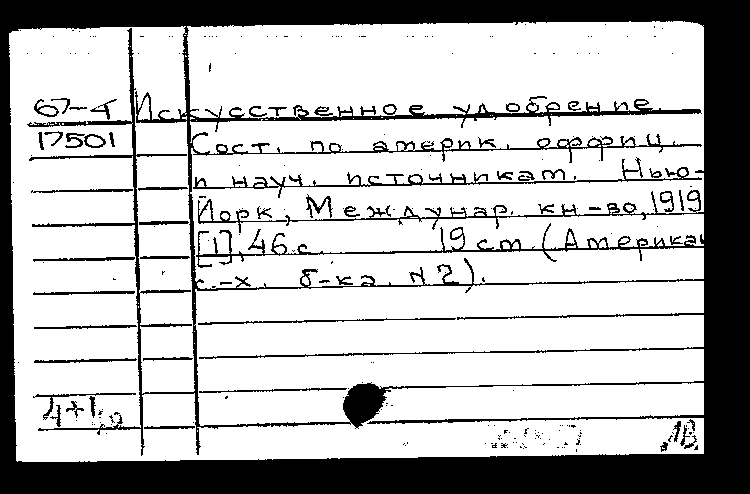 67-4 Искусственное удобрение.
17501 Сост. по америк. оффиц.
и науч. источникам. Нью-
Йорк, Междунар. кн-во, 1919
[1], 46 с. 19 см (Американ
с.-х. б-ка. N2).
4+1
ЛВ